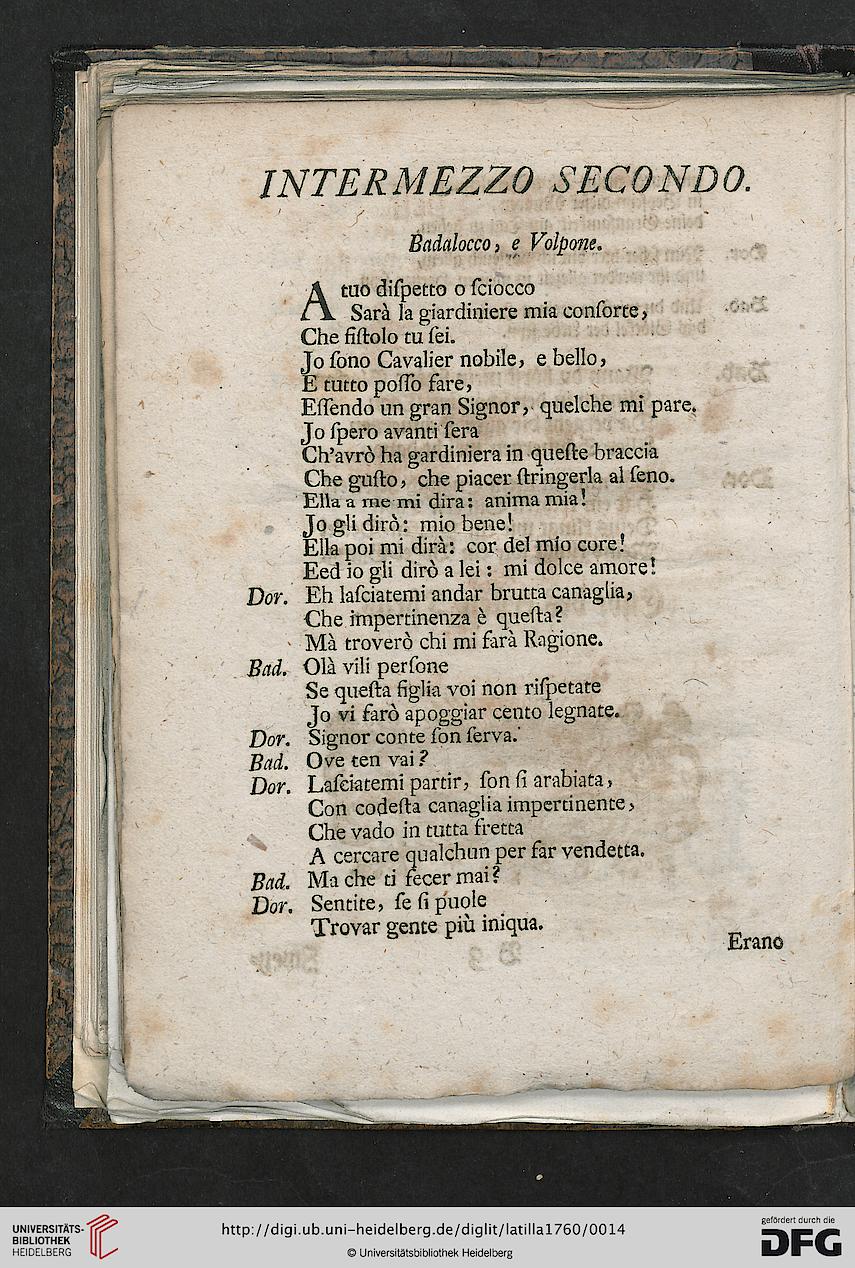 INTERMEZZO SECONDO.
Badalocco, e Volpone.
A tuo diſpetto o ſciocco
Sarà la giardiniere mia conſorte,
Che fiſtolo tu ſei.
Jo ſono Cavalier nobile, e bello,
E tutto poſſo fare,
Eſſendo un gran Signor, quelche mi pare.
Jo ſpero avanti ſera
Ch'avrò ha gardiniera in queſte braccia
Che guſto, che piacer ſtringerla al ſeno.
Ella a me mi dira: anima mia!
Jo gli dirò: mio bene!
Ella poi mi dirà: cor del mio core!
Eed io gli dirò a lei: mi dolce amore!
Dor. Eh laſciatemi andar brutta canaglia,
Che impertinenza è queſta?
Mà troverò chi mi farà Ragione.
Bad. Olà vili perſone
Se queſta figlia voi non riſpetate
Jo vi farò apoggiar cento legnate.
Dor. Signor conte ſon ſerva.
Bad. Ove ten vai?
Dor. Laſciatemi partir, ſon ſi arabiata,
Con codeſta canaglia impertinente,
Che vado in tutta fretta
A cercare qualchun per far vendetta.
Bad. Ma che ti fecer mai?
Dor. Sentite, ſe ſi puole
Trovar gente più iniqua.
Erano
UNIVERSITÄTS-
BIBLIOTHEK
HEIDELBERG
http://digi.ub.uni-heidelberg.de/diglit/latilla1760/0014
© Universitätsbibliothek Heidelberg
gefördert durch die
DFG